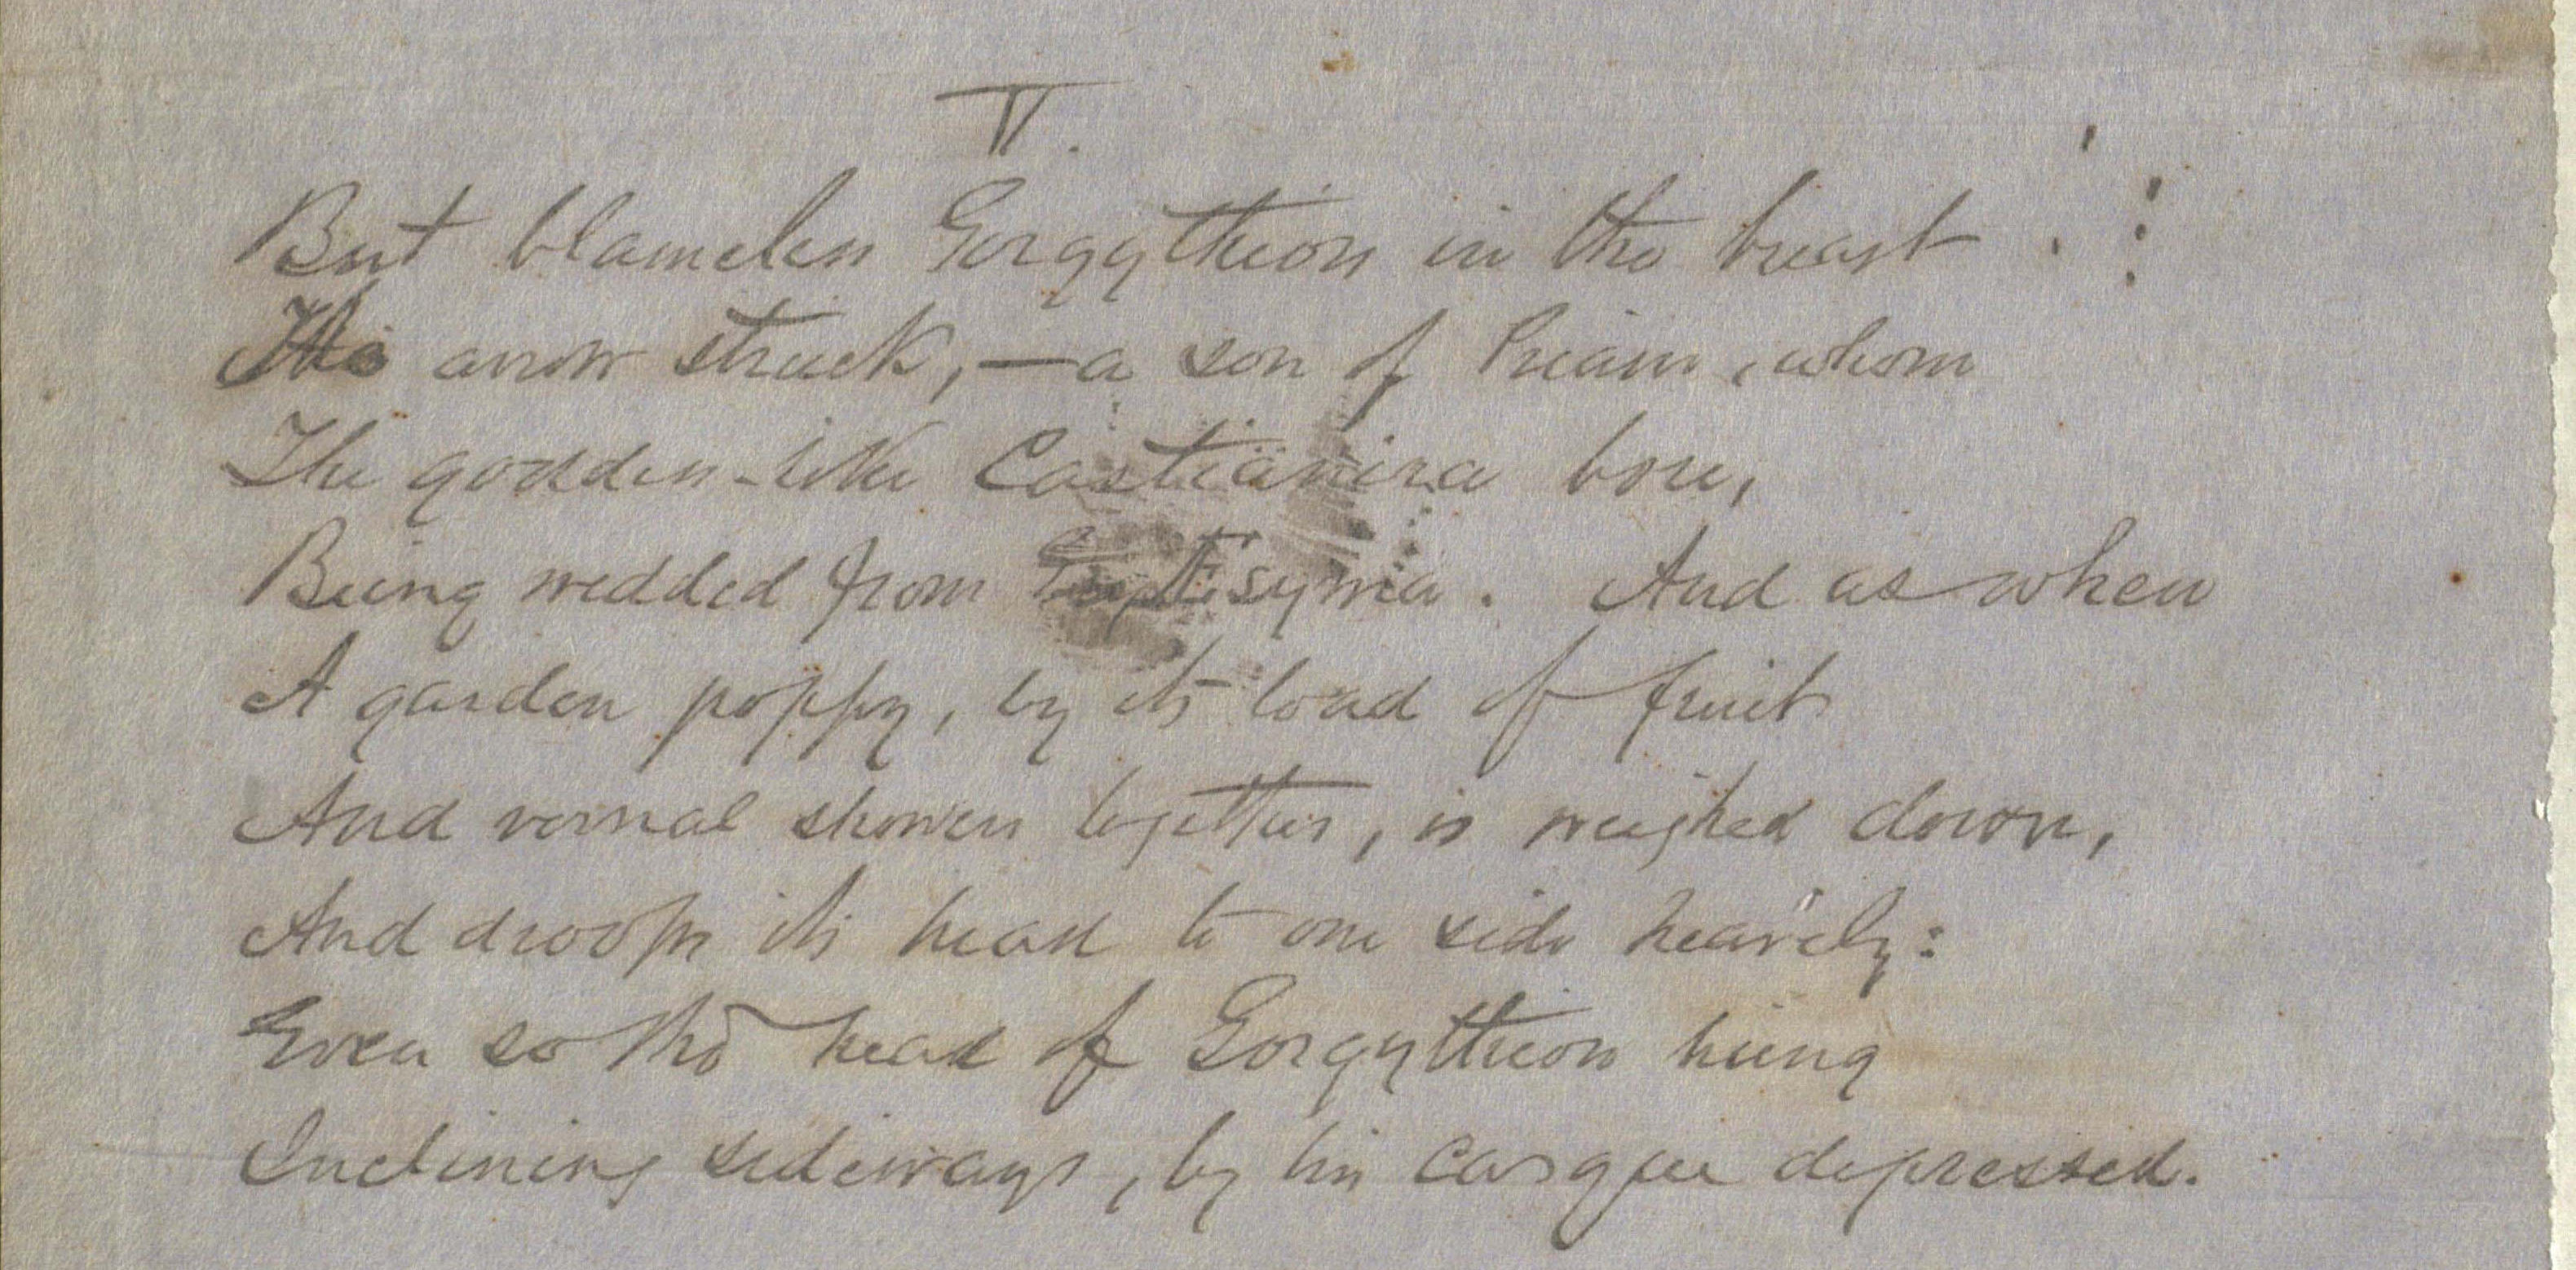 V.
But blameless Gorgythion in the breast
The arrow struck,—a son of Priam, whom
The goddess-like Castianira bore,
Being wedded from Æsyma. And as when
A garden poppy, by its load of fruit
And vernal showers together, is weighed down,
And droops its head to one side heavily:
Even so the head of Gorgythion hung
Inclining sideways, by his casque depressed.